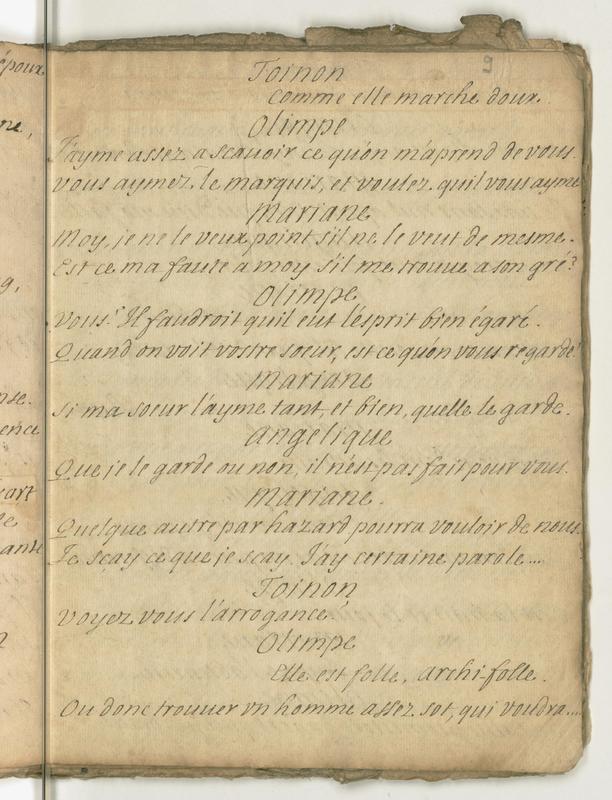 époux
2
Toinon
Comme elle marche doux.
ne,
Olimpe
J'ayme assez a scauoir ce qu'on m'aprend de vous.
Vous aymez le marquis, et voulez quil vous ayme
Mariane
Moy, je ne le veux point s'il ne le veut de mesme.
Est ce ma faute a moy s'il me trouue a son gré?
g,
Olimpe
Vous! Il faudroit quil eut l'esprit bien égaré.
Quand on voit vostre soeur, est ce qu'on vous regarde?
Mariane
nse.
Si ma soeur l'ayme tant, et bien, quelle le garde.
ence
Angelique
Que je le garde ou non, il n'est pas fait pour vous.
Mariane.
Quelque autre par hazard pourra vouloir de nous.
Je sçay ce que je sçay. J'ay certaine parole....
ante
Toinon
Voyez vous l'arrogance!
Olimpe
Elle est folle, archi-folle.
Ou donc trouuer vn homme assez sot, qui voudra....